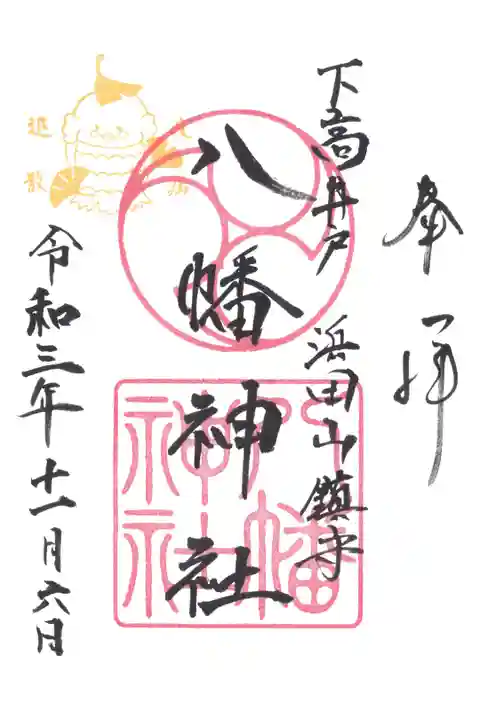 奉拝
下高井戸 浜田山鎮守
八幡神社
八幡
神社
令和三年十一月六日
退散